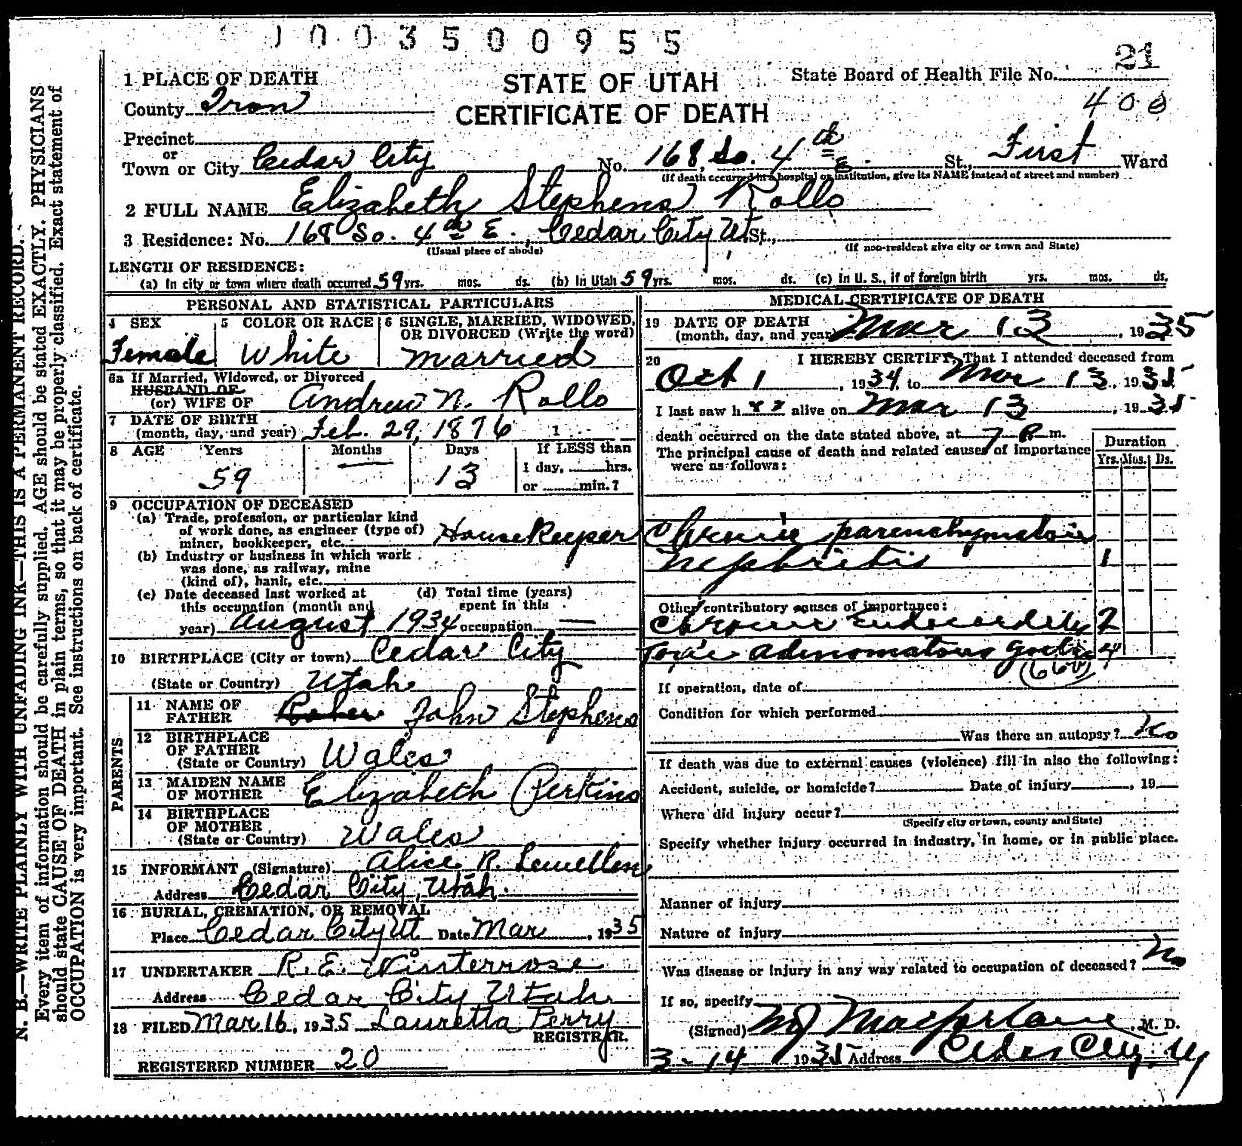 1003500955
21
1 PLACE OF DEATH
STATE OF UTAH
State Board of Health File No.
County Iron
CERTIFICATE OF DEATH
400
Precinct
or
Town or City Cedar City No. 168 So. 4th E. St., First Ward
(If death occurred in a hospital or institution, give its NAME instead of street and number)
2 FULL NAME Elizabeth Stephens Rollo
3 Residence: No. 168 So. 4th E., Cedar City Ut St.,
(Usual place of abode) (If non-resident give city or town and State)
LENGTH OF RESIDENCE:
(a) In city or town where death occurred 59 yrs. mos. ds. (b) In Utah 59 yrs. mos. ds. (c) In U. S., if of foreign birth yrs. mos. ds.
PERSONAL AND STATISTICAL PARTICULARS
4 SEX
Female
5 COLOR OR RACE
White
6 SINGLE, MARRIED, WIDOWED,
OR DIVORCED (Write the word)
Married
6a If Married, Widowed, or Divorced
HUSBAND OF
(or) WIFE OF Andrew N. Rollo
7 DATE OF BIRTH
(month, day, and year) Feb. 29, 1876
8 AGE Years Months Days If LESS than
59 — 13 1 day, hrs.
or min.?
9 OCCUPATION OF DECEASED
(a) Trade, profession, or particular kind
of work done, as engineer (type of)
miner, bookkeeper, etc. Housekeeper
(b) Industry or business in which work
was done, as railway, mine
(kind of), bank, etc.
(c) Date deceased last worked at
this occupation (month and
year) August 1934
(d) Total time (years)
spent in this
occupation —
10 BIRTHPLACE (City or town) Cedar City
(State or Country) Utah
PARENTS
11 NAME OF
FATHER John Stephens
12 BIRTHPLACE
OF FATHER
(State or Country) Wales
13 MAIDEN NAME
OF MOTHER Elizabeth Perkins
14 BIRTHPLACE
OF MOTHER
(State or Country) Wales
15 INFORMANT (Signature) Alice R. Lewellen
Address Cedar City, Utah.
16 BURIAL, CREMATION, OR REMOVAL
Place Cedar City Ut Date Mar , 1935
17 UNDERTAKER R. E. Winterrose
Address Cedar City Utah
18 FILED Mar 16, 1935 Lauretta Perry
REGISTRAR.
REGISTERED NUMBER 20
MEDICAL CERTIFICATE OF DEATH
19 DATE OF DEATH
(month, day, and year) Mar 13 , 1935
20 I HEREBY CERTIFY, That I attended deceased from
Oct 1 , 1934 to Mar 13, 1935
I last saw h alive on Mar 13 , 1935
death occurred on the date stated above, at 7 P. m.
The principal cause of death and related causes of importance
were as follows:
Duration
Yrs. Mos. Ds.
Chronic parenchymatous
Nephritis 1
Other contributory causes of importance:
Chronic Endocarditis 2
Toxic adenomatous goitre 4
(66b)
If operation, date of
Condition for which performed
Was there an autopsy? No
If death was due to external causes (violence) fill in also the following:
Accident, suicide, or homicide? Date of injury , 19
Where did injury occur?
(Specify city or town, county and State)
Specify whether injury occurred in industry, in home, or in public place.
Manner of injury
Nature of injury
Was disease or injury in any way related to occupation of deceased? No
If so, specify
(Signed) M J Macfarlane, M. D.
3-14 1935 Address Cedar City, Ut
N. B.—WRITE PLAINLY WITH UNFADING INK—THIS IS A PERMANENT RECORD.
Every item of information should be carefully supplied. AGE should be stated EXACTLY. PHYSICIANS
should state CAUSE OF DEATH in plain terms, so that it may be properly classified. Exact statement of
OCCUPATION is very important. See instructions on back of certificate.